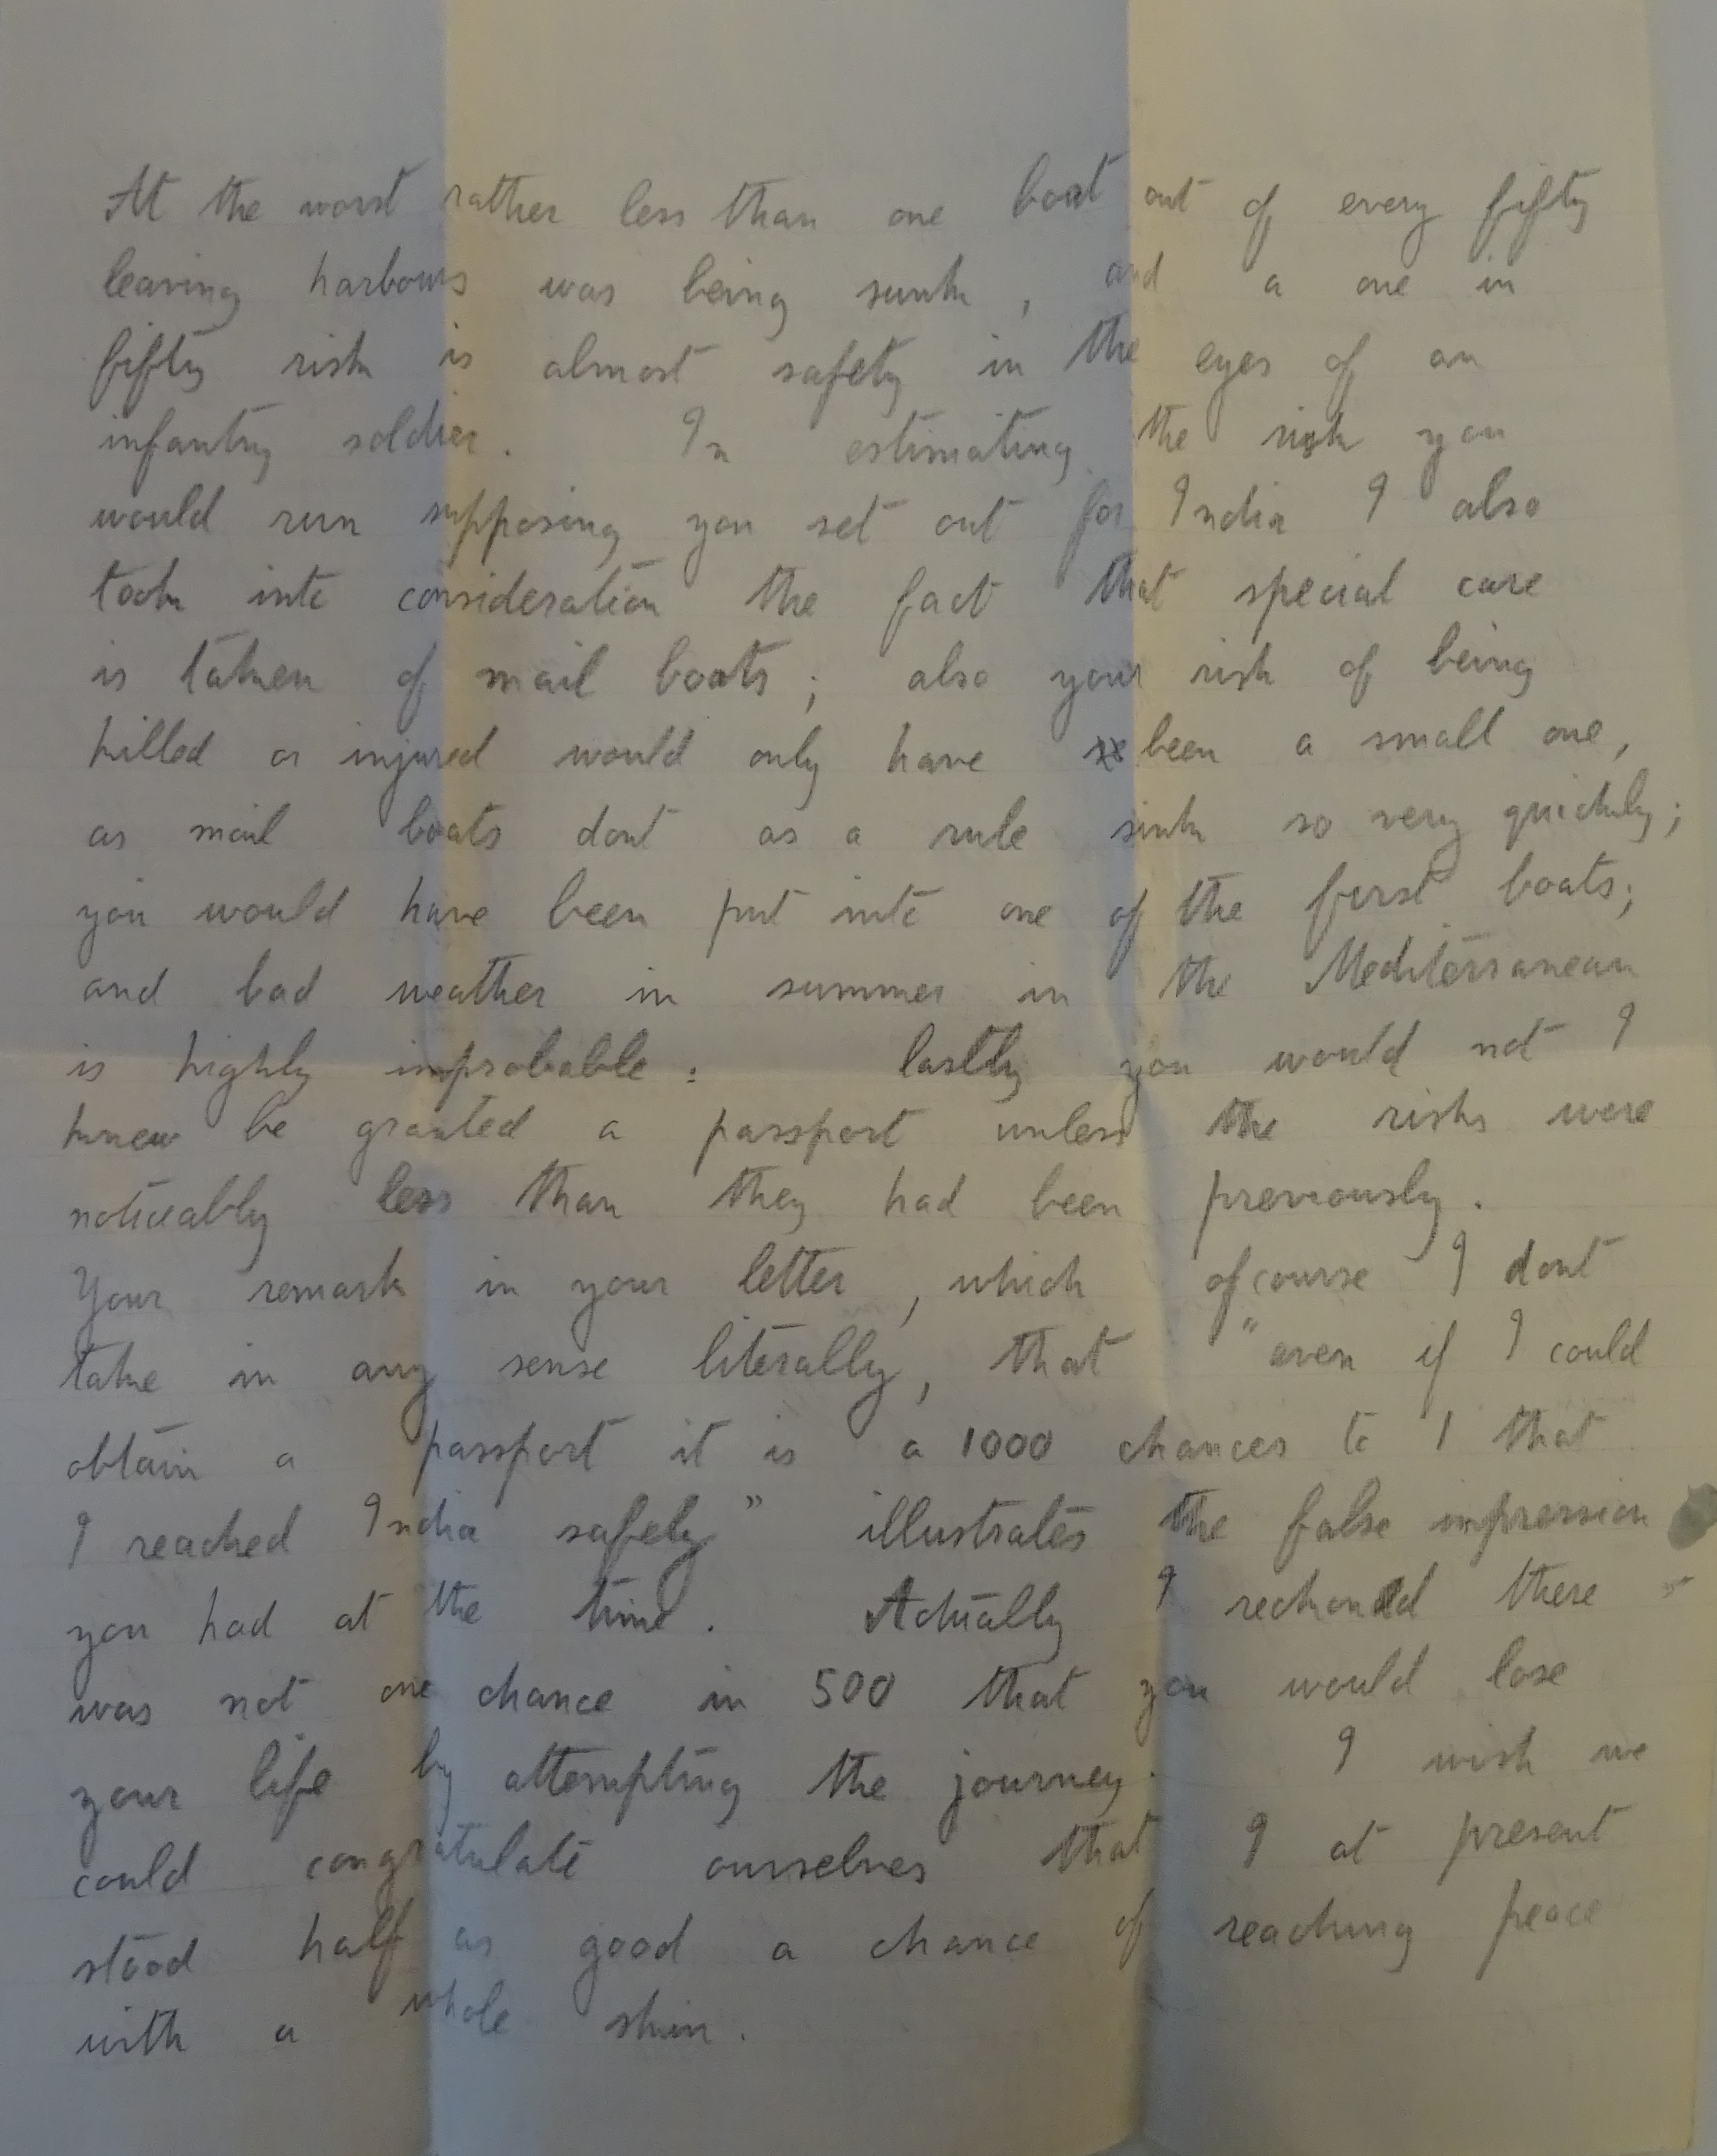 At the worst rather less than one boat out of every fifty
leaving harbours was being sunk, and a one in
fifty risk is almost safety in the eyes of an
infantry soldier. In estimating the risk you
would run supposing you set out for India I also
took into consideration the fact that special care
is taken of mail boats; also your risk of being
killed or injured would only have been a small one,
as mail boats dont as a rule sink so very quickly;
you would have been put into one of the first boats;
and bad weather in summer in the Mediterranean
is highly improbable: lastly you would not I
knew be granted a passport unless the risks were
noticeably less than they had been previously.
Your remark in your letter, which ofcourse I dont
take in any sense literally, that "even if I could
obtain a passport it is a 1000 chances to 1 that
I reached India safely" illustrates the false impression
you had at the time. Actually I reckoned there
was not one chance in 500 that you would lose
your life by attempting the journey. I wish we
could congratulate ourselves that I at present
stood half as good a chance of reaching peace
with a whole skin.